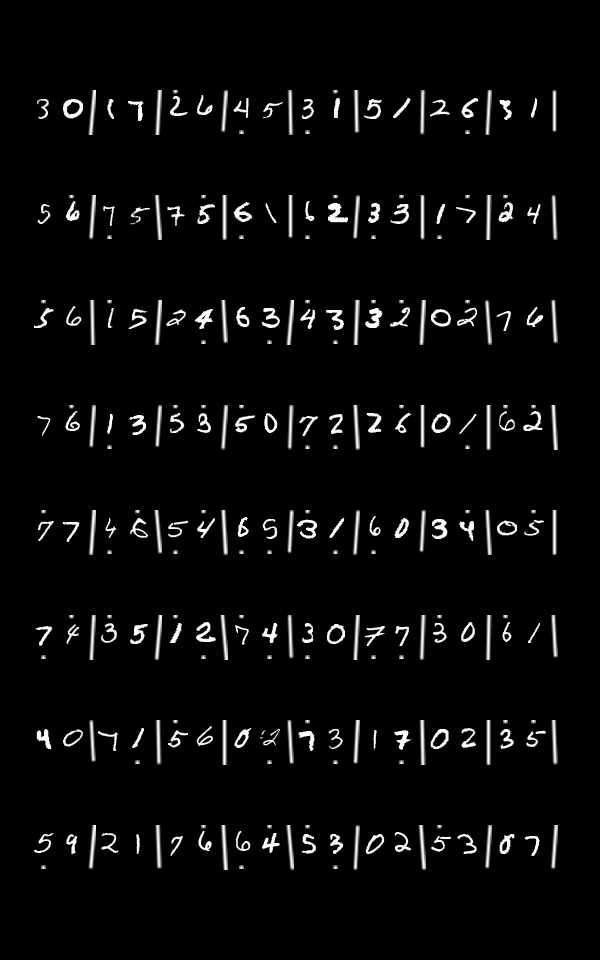 3 0 | 1 7 | 2 6 | 4 5 | 3 1 | 5 1 | 2 6 | 3 1 |
5 6 | 7 5 | 7 5 | 6 1 | 6 2 | 3 3 | 1 7 | 2 4 |
5 6 | 1 5 | 2 4 | 6 3 | 4 3 | 3 2 | 0 2 | 7 6 |
7 6 | 1 3 | 5 3 | 5 0 | 7 2 | 2 6 | 0 1 | 6 2 |
7 7 | 4 6 | 5 4 | 6 5 | 3 1 | 6 0 | 3 4 | 0 5 |
7 4 | 3 5 | 1 2 | 7 4 | 3 0 | 7 7 | 3 0 | 6 1 |
4 0 | 7 1 | 5 6 | 0 2 | 7 3 | 1 7 | 0 2 | 3 5 |
5 9 | 2 1 | 7 6 | 6 4 | 5 3 | 0 2 | 5 3 | 0 7 |